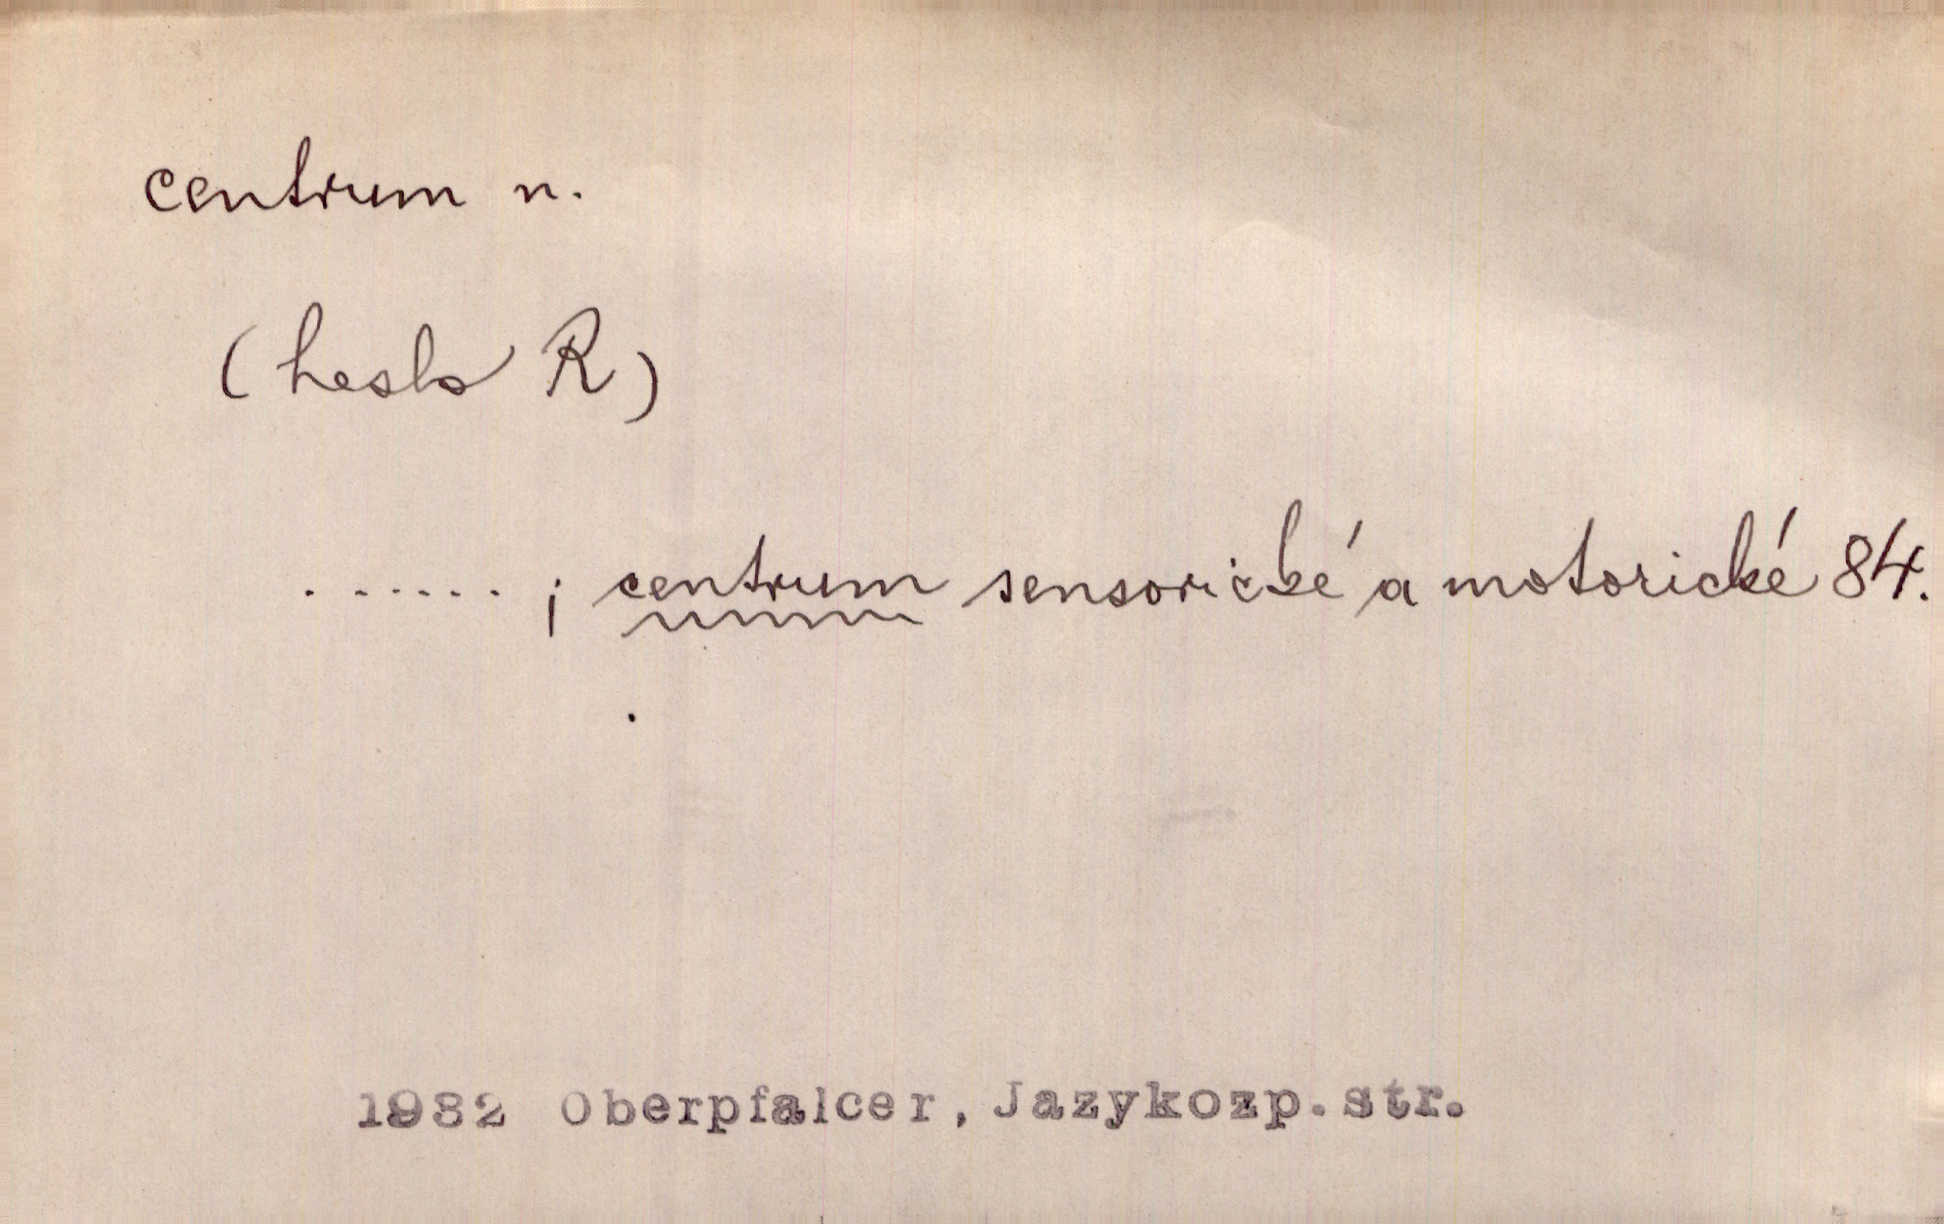 centrum n.
(heslo R)
.......; centrum sensorické a motorické 84.
1932 Oberpfalcer, Jazykozp. str.